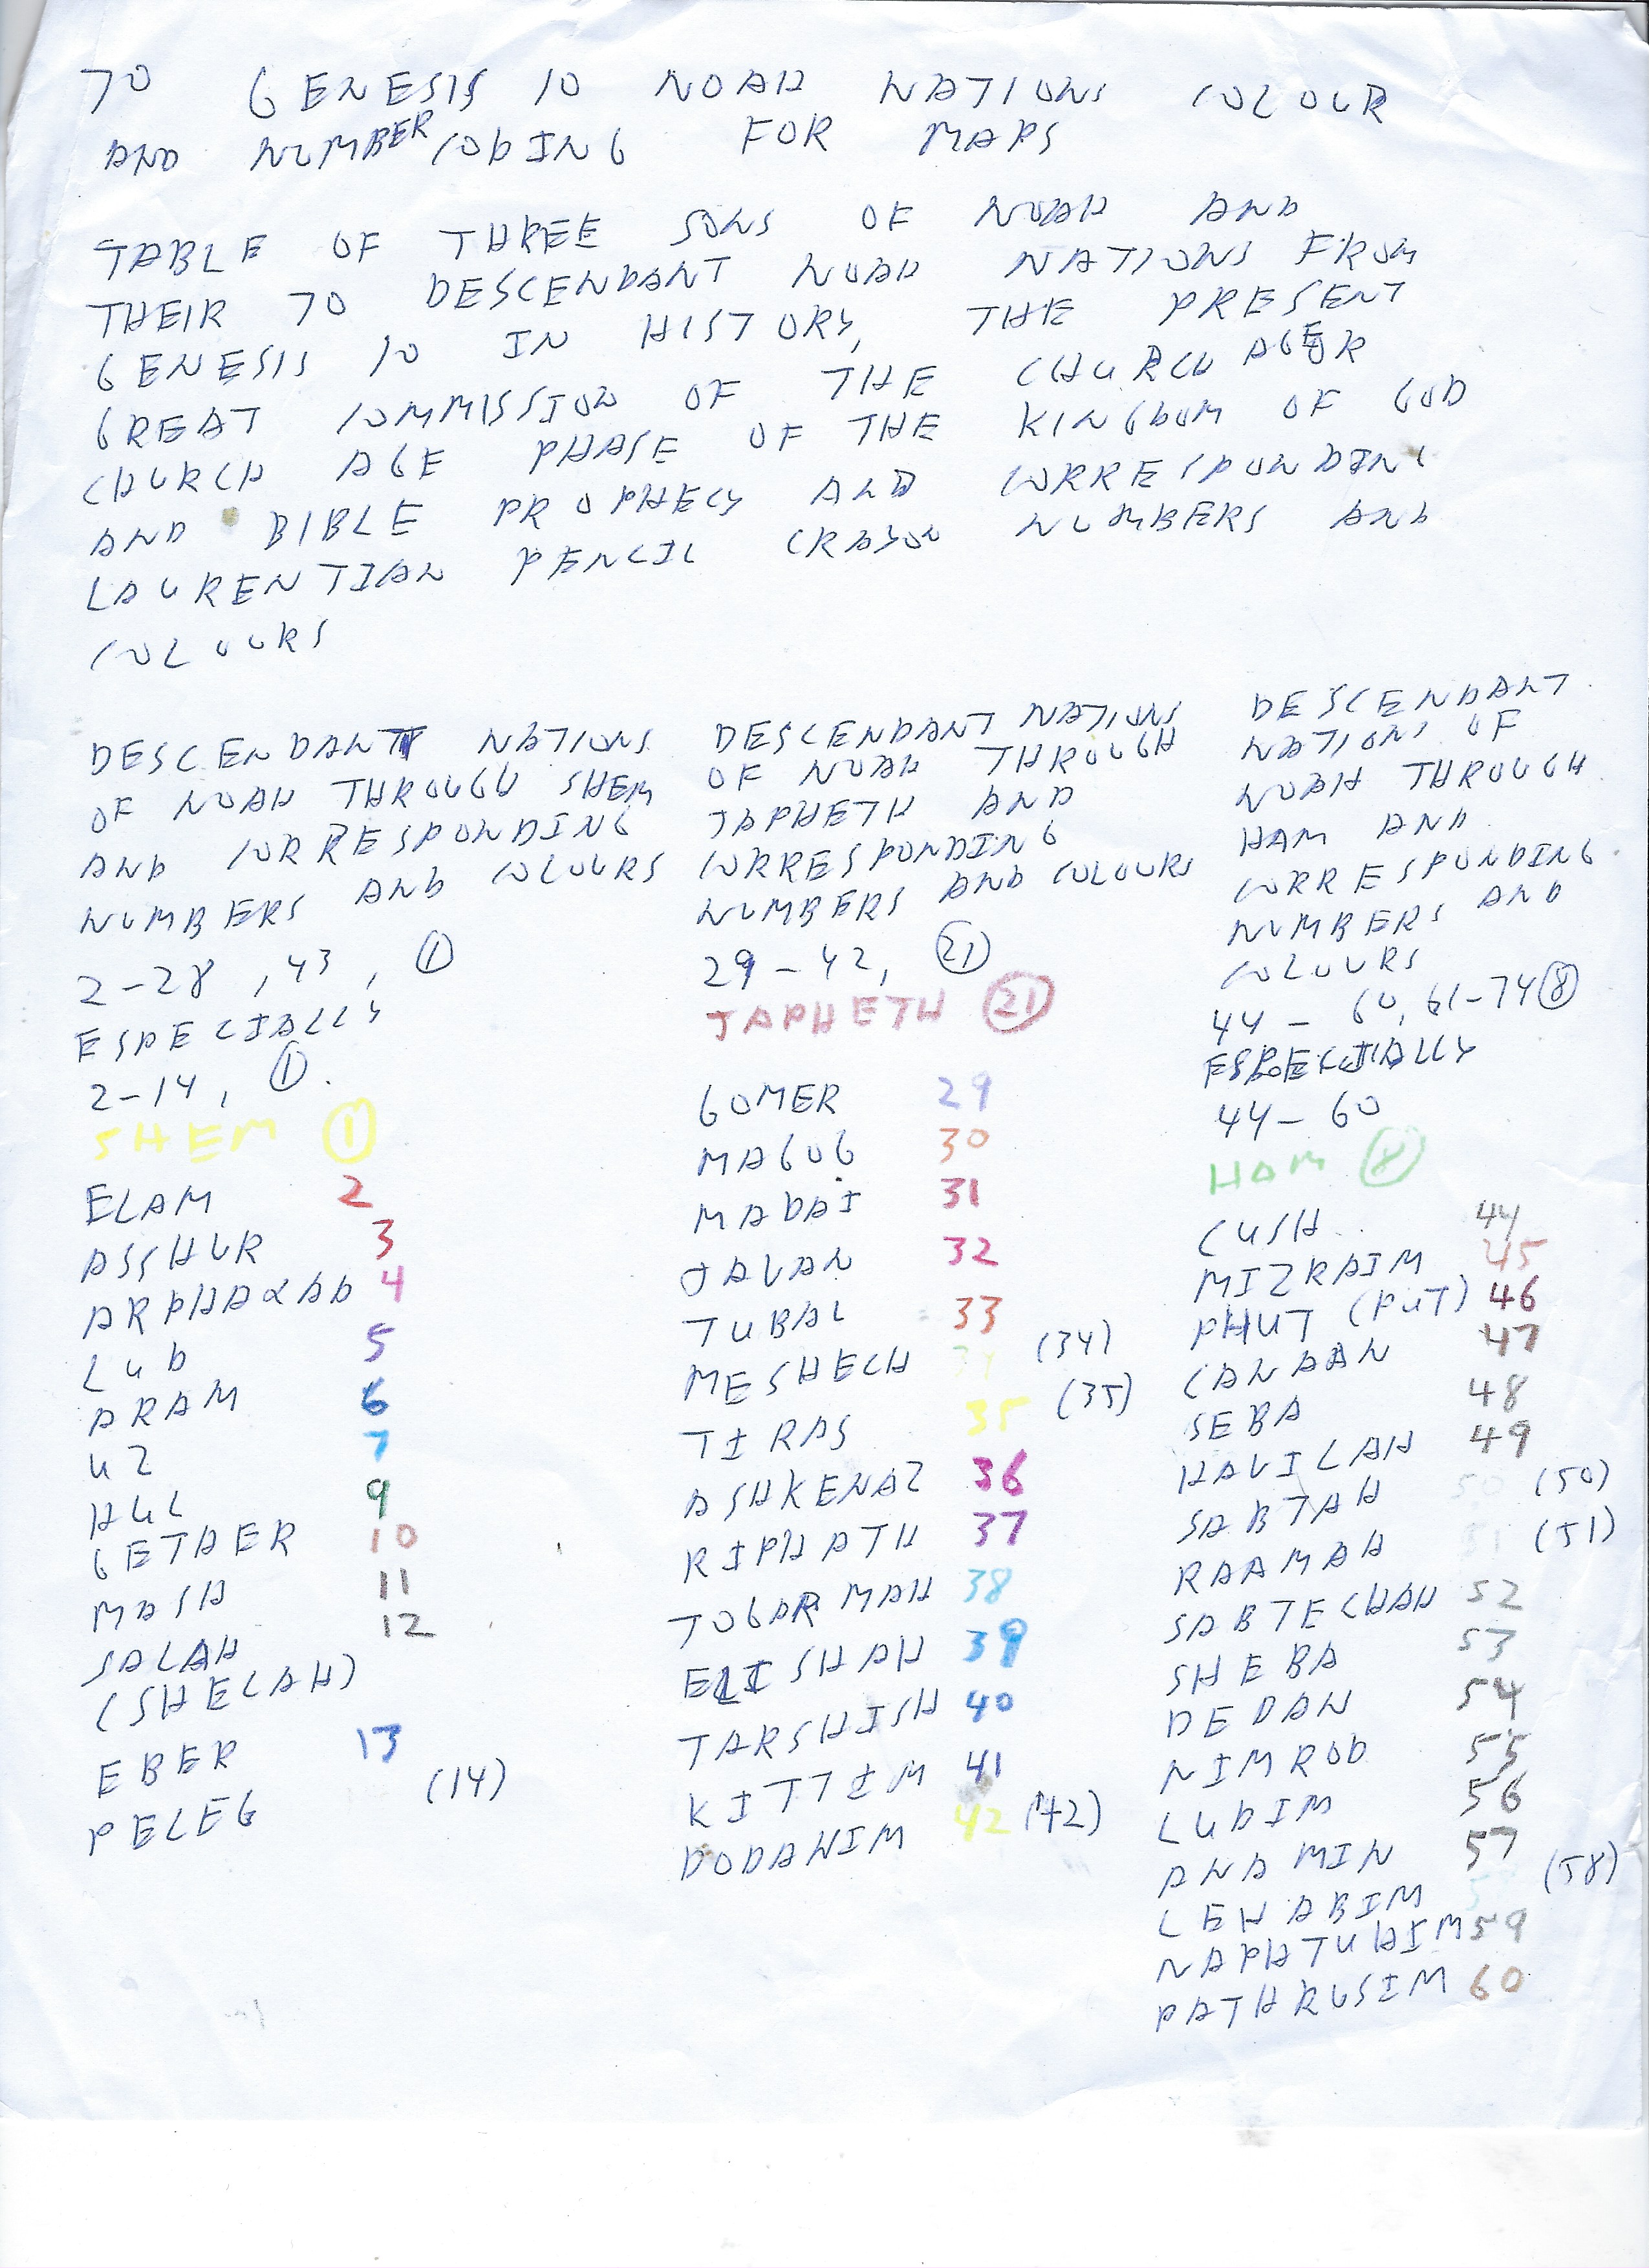 70 GENESIS 10 NOAH NATIONS COLOUR
AND NUMBER CODING FOR MAPS
TABLE OF THREE SONS OF NOAH AND
THEIR 70 DESCENDANT NOAH NATIONS FROM
GENESIS 10 IN HISTORY, THE PRESENT
GREAT COMMISSION OF THE CHURCH AGE OR
CHURCH AGE PHASE OF THE KINGDOM OF GOD
AND BIBLE PROPHECY AND CORRESPONDING
LAURENTIAN PENCIL CRAYON NUMBERS AND
COLOURS
DESCENDANT NATIONS
OF NOAH THROUGH SHEM
AND CORRESPONDING
NUMBERS AND COLOURS
2-28, 43, 1
ESPECIALLY
2-14, 1.
SHEM 1
ELAM 2
ASSHUR 3
ARPHAXAD 4
LUD 5
ARAM 6
UZ 7
HUL 9
GETHER 10
MASH 11
SALAH 12
(SHELAH)
EBER 13
PELEG (14)
DESCENDANT NATIONS
OF NOAH THROUGH
JAPHETH AND
CORRESPONDING
NUMBERS AND COLOURS
29-42, 21
JAPHETH 21
GOMER 29
MAGOG 30
MADAI 31
JAVAN 32
TUBAL 33
MESHECH 34 (34)
TIRAS 35 (35)
ASHKENAZ 36
RIPHATH 37
TOGARMAH 38
ELISHAH 39
TARSHISH 40
KITTIM 41
DODANIM 42 (42)
DESCENDANT
NATIONS OF
NOAH THROUGH
HAM AND
CORRESPONDING
NUMBERS AND
COLOURS
44-60, 61-74 8
ESPECIALLY
44-60
HAM 8
CUSH 44
MIZRAIM 45
PHUT (PUT) 46
CANAAN 47
SEBA 48
HAVILAH 49
SABTAH 50 (50)
RAAMAH 51 (51)
SABTECHAH 52
SHEBA 53
DEDAN 54
NIMROD 55
LUDIM 56
ANAMIN 57
LEHABIM 58 (58)
NAPHTUHIM 59
PATHRUSIM 60